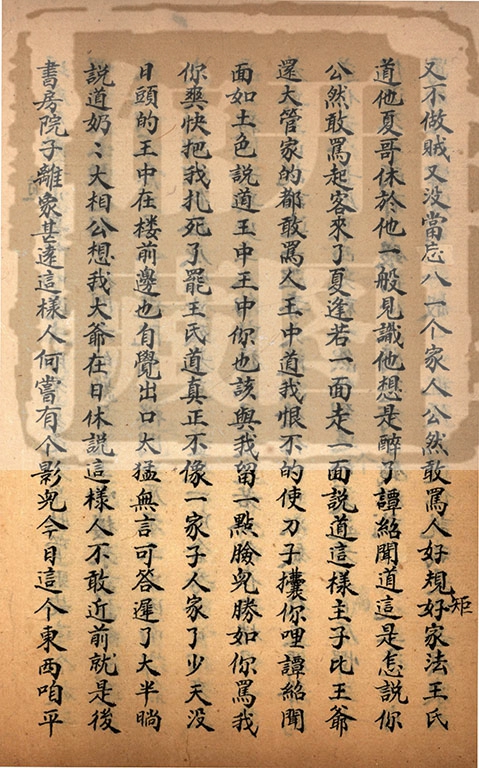 又不做賊又没當忘八一个家人公然敢罵人好規矩好家法王氏
道他夏哥休於他一般見識他想是醉了譚紹聞道這是怎説你
公然敢罵起客來了夏逢若一面走一面説道這樣主子比王爺
還大管家的都敢罵人王中道我恨不的使刀子攮你哩譚紹聞
面如土色說道王中王中你也該與我留一點臉兒勝如你罵我
你爽快把我扎死了罷王氏道真正不像一家子人家了少天没
日頭的王中在楼前邊也自覺出口太猛無言可答遲了大半晌
説道奶〻大相公想我大爺在日休説這樣人不敢近前就是後
書房院子離家甚遠這樣人何嘗有个影兒今日這个東西咱平